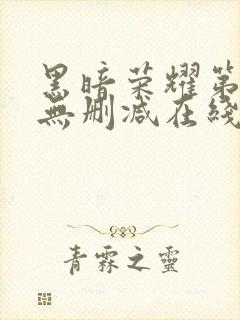 黑暗荣耀第
無删减在线
青霖之靈